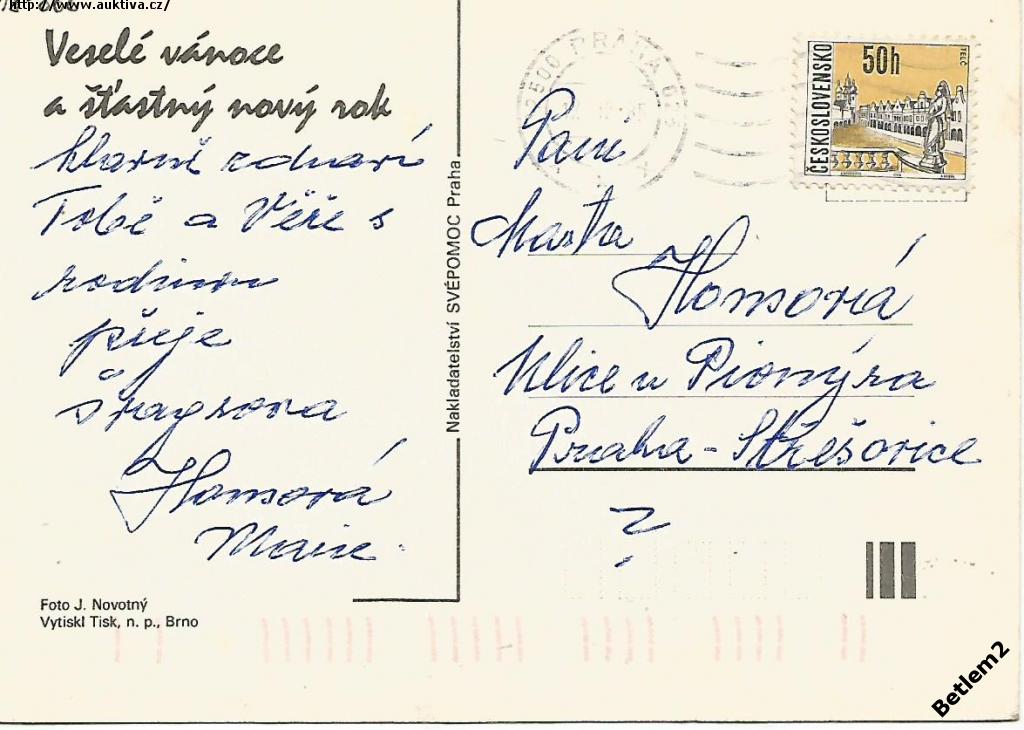 http://www.auktiva.cz/
Veselé vánoce
a šťastný nový rok
hlavně zdraví
Tobě a Věře s
rodinou
přeje
Homsová
Marie.
Foto J. Novotný
Vytiskl Tisk, n. p., Brno
Nakladatelství SVÉPOMOC Praha
PRAHA
ČESKOSLOVENSKO
50h
TELČ
Paní
Marta
Homsová
Ulice u Pionýra
Praha - Střešovice
Betlem2